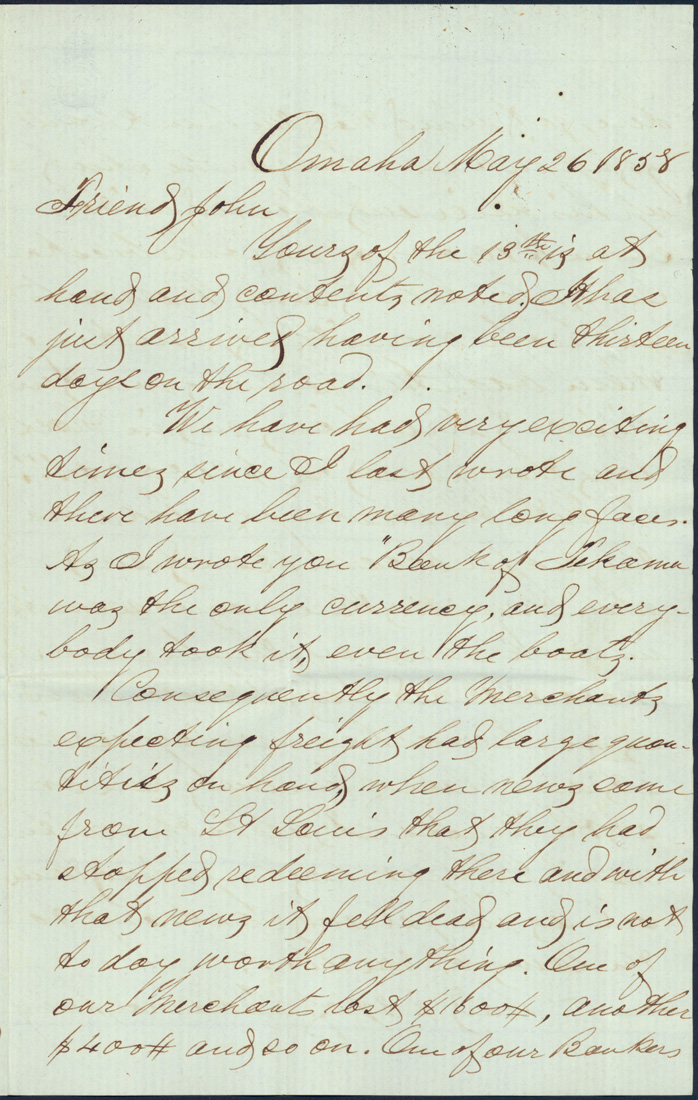 Omaha May 26 1858
Friend John
Yours of the 13th is at
hand and contents noted. It has
just arrived having been thirteen
days on the road.
We have had very exciting
times since I last wrote and
there have been many long faces.
As I wrote you "Bank of Tekama
was the only currency, and every-
body took it, even the boats.
Consequently the Merchants
expecting freight had large quan-
tities on hand, when news came
from St Louis that they had
stopped redeeming there and with
that news it fell dead and is not
to day worth anything. One of
our Merchants lost $600#, another
$400# and so on. One of our Bankers